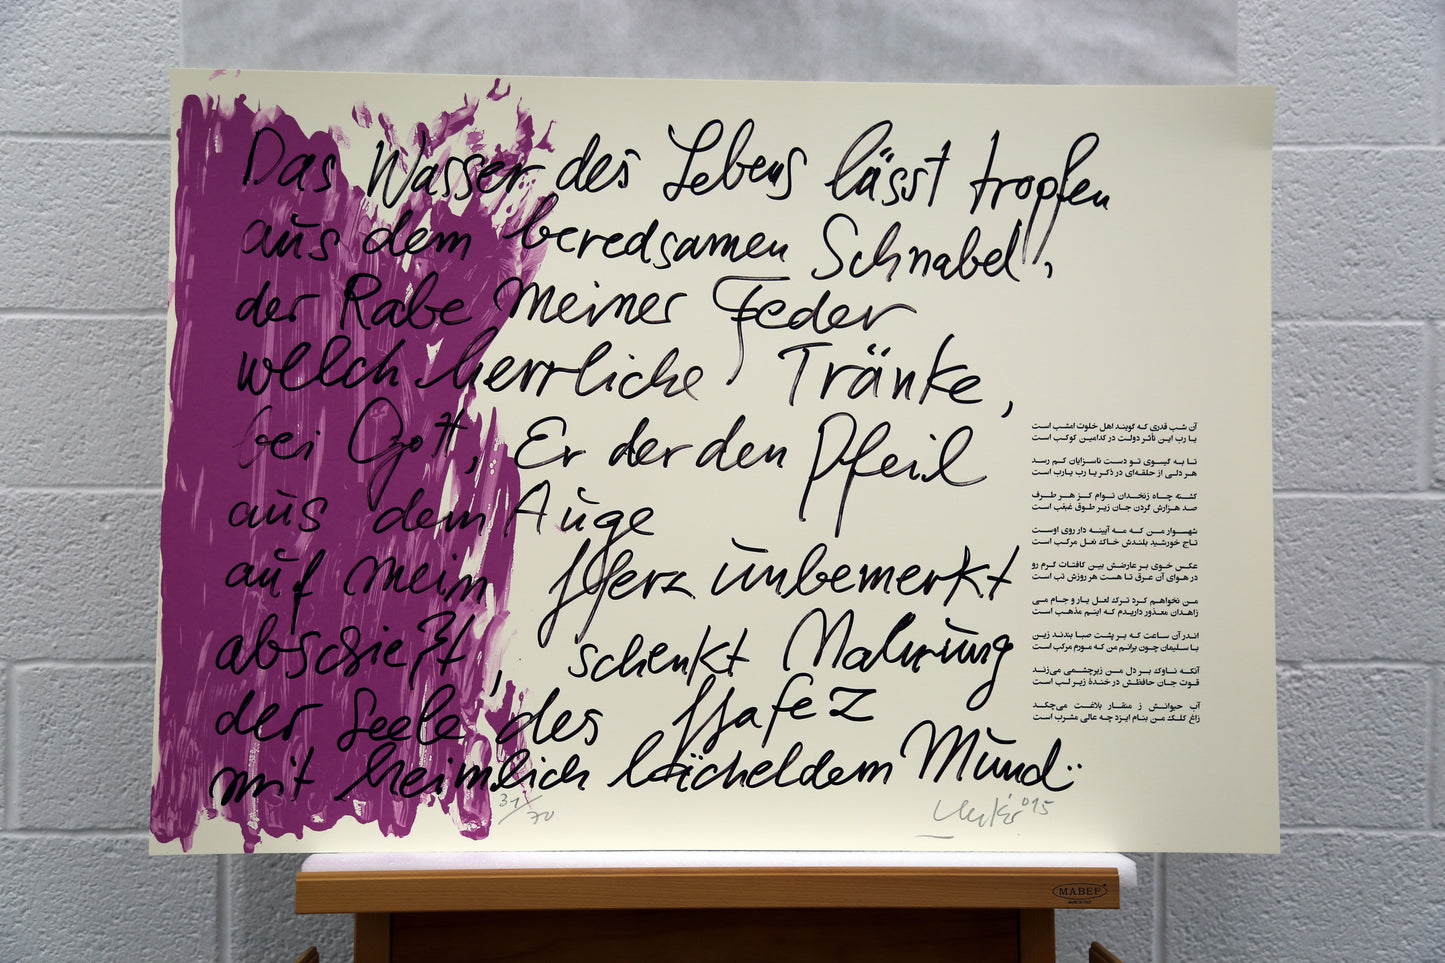 Das Wasser des Lebens lässt tropfen
aus dem beredsamen Schnabel,
der Rabe meiner Feder
welch herrliche Tränke,
bei Gott, Er der den Pfeil
aus dem Auge
auf mein Herz unbemerkt
abschießt, schenkt Nahrung
der Seele des Hafez
mit heimlich lächeldem Mund
31/70
Uecker 015
آن شب قدری که گویند اهل خلوت امشب است
یا رب این تأثیر دولت در کدامین کوکب است
تا به گیسوی تو دست ناسزایان کم رسد
هر دلی از حلقه‌ای در ذکر یا رب یارب است
کشته چاه زنخدان توام کز هر طرف
صد هزارش گردن جان زیر طوق غبغب است
شهسوار من که مه آیینه دار روی اوست
تاج خورشید بلندش خاک نعل مرکب است
عکس خوی بر عارضش بین کافتاب گرم رو
در هوای آن عرق تا هست هر روزش تب است
من نخواهم کرد ترک لعل یار و جام می
زاهدان معذور داریدم که اینم مذهب است
اندر آن ساعت که بر پشت صبا بندند زین
با سلیمان چون برانم من که مورم مرکب است
آنکه ناوک بر دل من زیرچشمی می‌زند
قوت جان حافظش در خندهٔ زیر لب است
آب حیوانش ز منقار بلاغت می‌چکد
زاغ کلک من بنام ایزد چه عالی مشرب است
MABEF